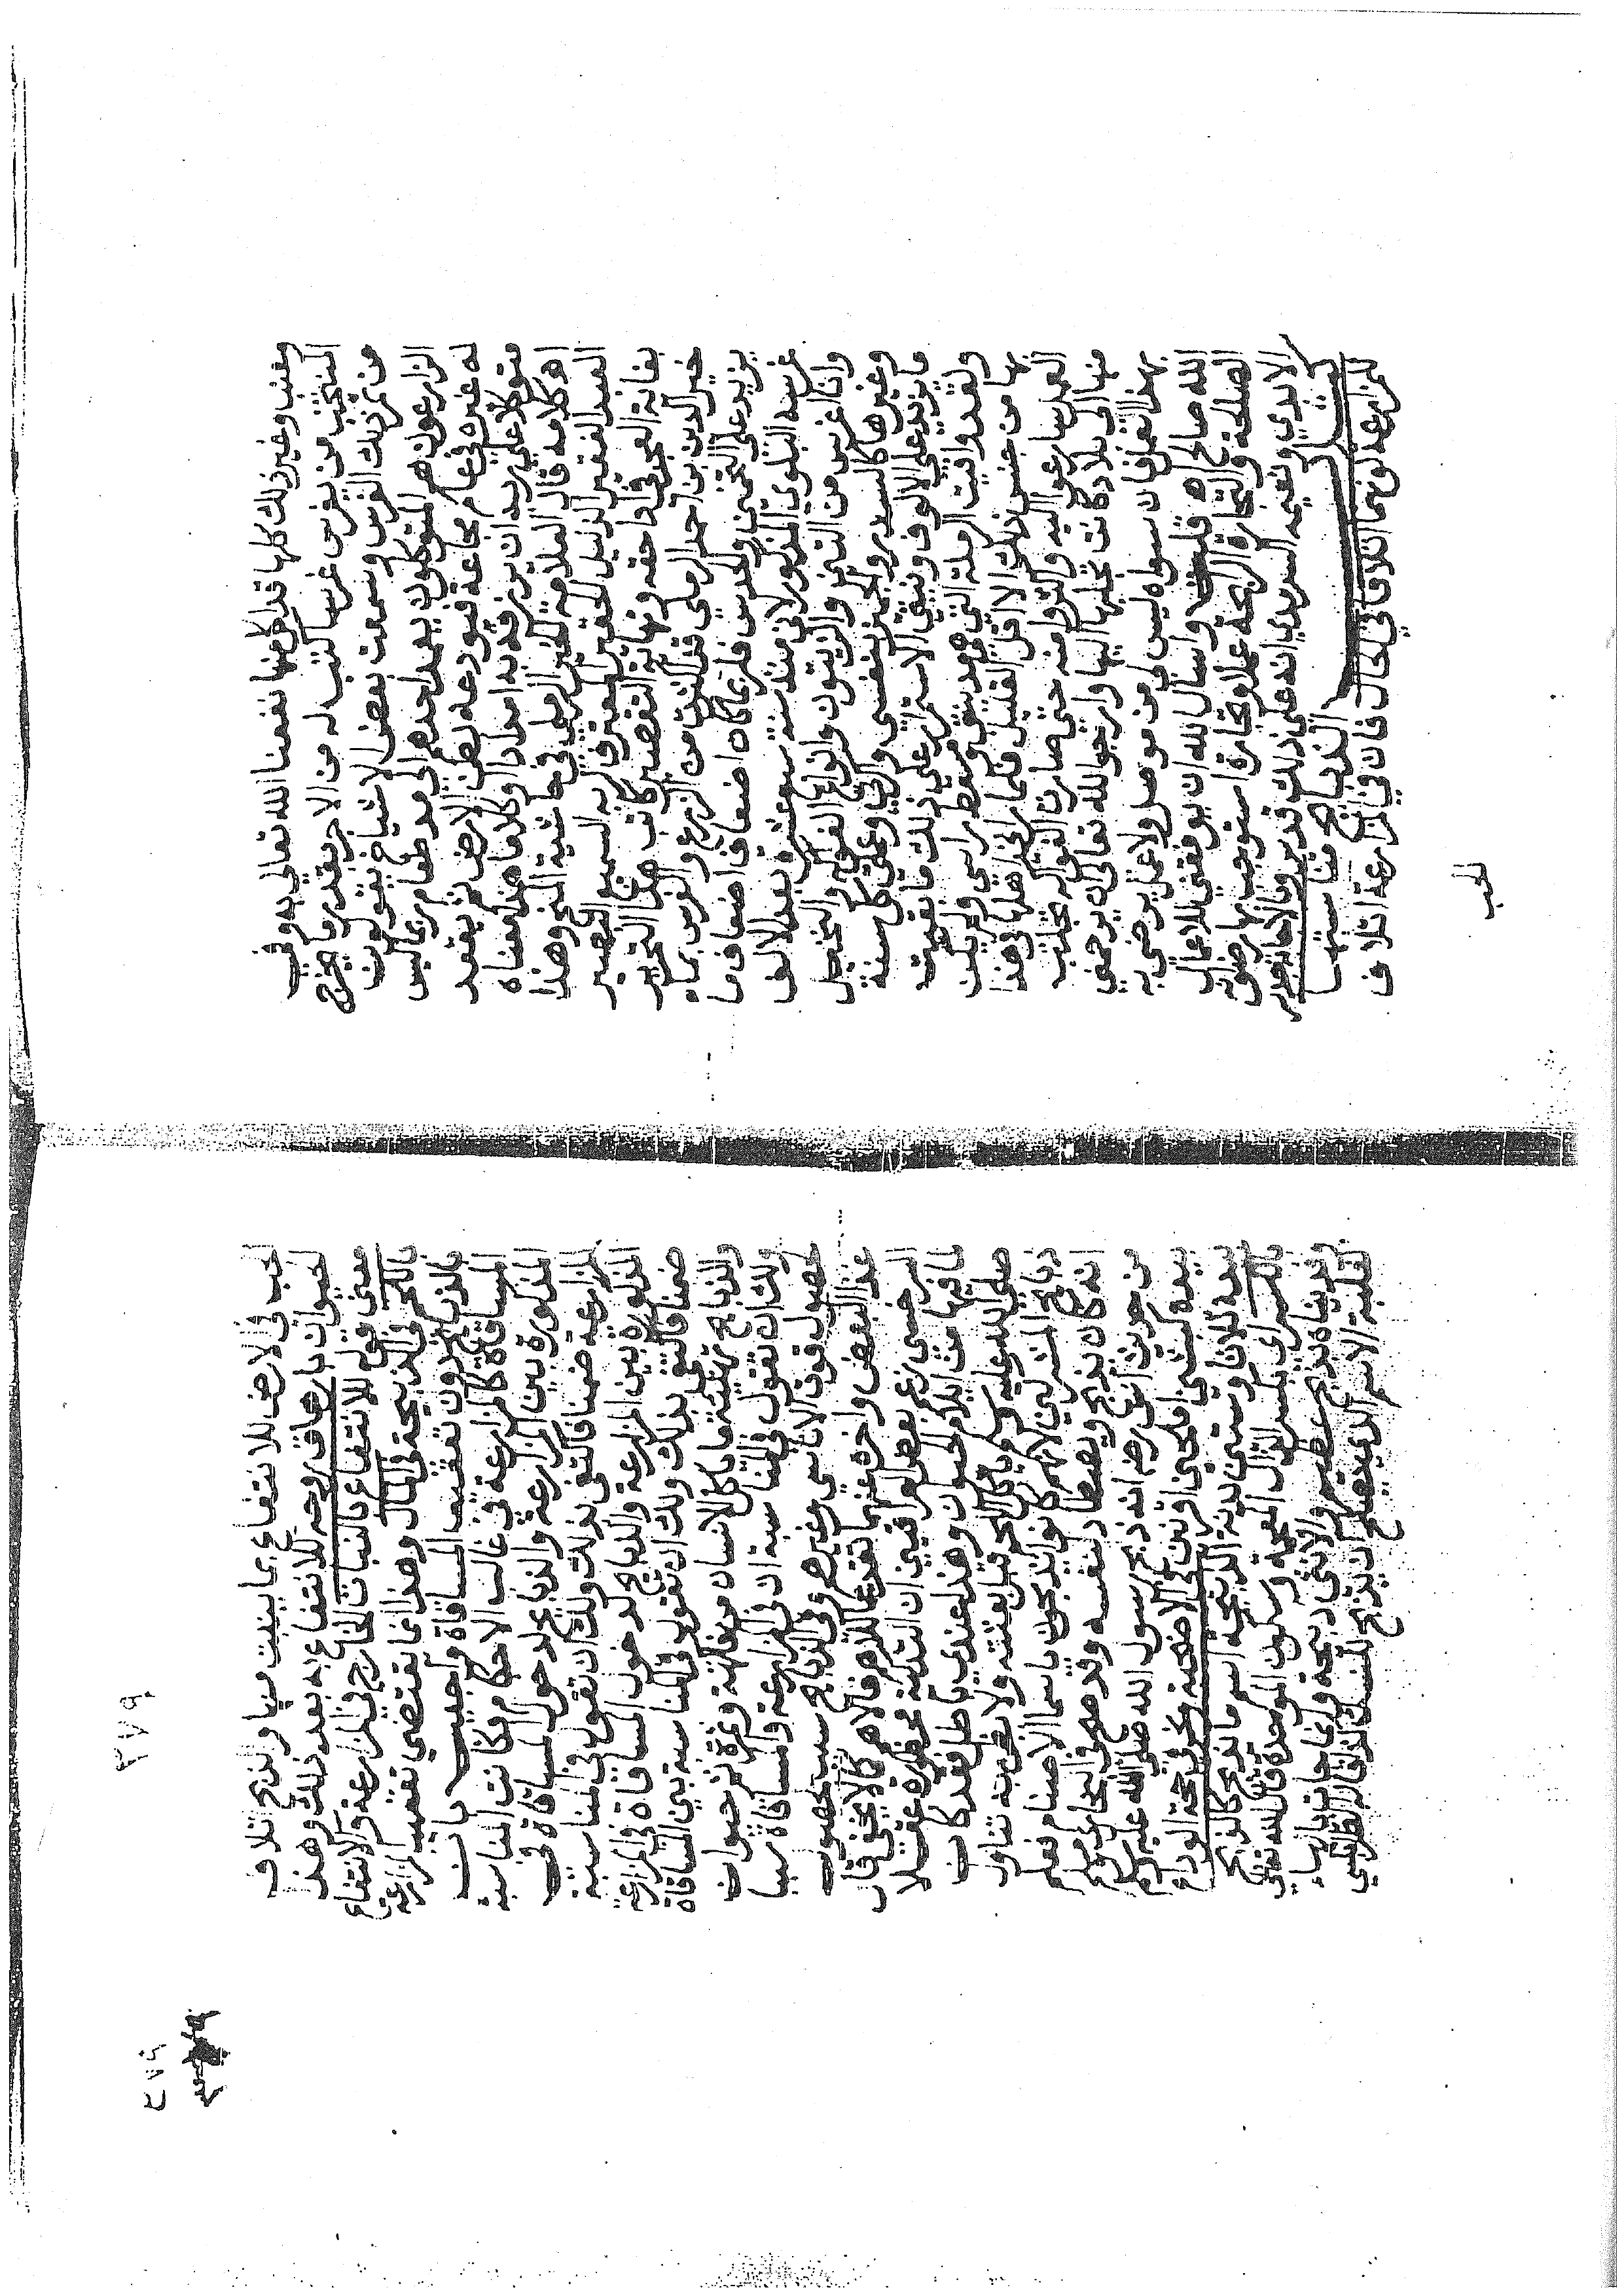 وعنب وغير ذلك كلها قد اكل منها نفعنا الله تعالى به وفي
المنتخب من يغرس غرسا كتب له من الاجر بقدر ما يخرج
من ثمر ذلك الغرس وسمعت بعض الاشياخ يقول ان
الزارعون هم المتوكلون يعمد احدهم الى مد طعام ربما ليس
له غيره في عام مجاعة فيودعه بطن الارض ثم يقعد
متوكلا على ربه ان يرزقه بدامدادا وكلاما هذا معناه
اهـ كلامه قال العلامة الخير الرملي في حاشية المنح وهذا
العبد الفقير الذليل الحقير المعترف لربه السميع البصير
بغاية العجز في اداحقه ونهاية التقصير كاتب هذا التحرير
خير الدين بن احمد الرملي قد اكثرت من الزرع والغرس بما
يزيد على التخمين والحدس فلربما كان اضعاف اضعاف ما
غرسه البلوي المذكور لاني منذ سنة سبع عشرة بعد الالف
وانا اغرس من التين والزيتون وانواع الفواكه والنخيل
وغيرها كالسدر والجميز بنفسي واكري وعلى كل سنة
ما يزيد على الالوف ونيتي الاستمرار على ذلك ما بقيت
ولقد وافيت الرملة التي هي مدينتي ومسقط راسي ولم يكن
بها من جنس ذلك الا اقل القليل فلما راى اهلها مني هذا
العمل سارعوا اليه واكثروا منه حتى صارت الفواكه تجلب
منها الى بلاد كانت تجلبها اليها وارجو الله تعالى ان يرحمني
بهذا العمل فان سواه ليس لي من موصل ولا عمل يرضى به
الله صالح اهـ قلت واسال الله ان يوفقني للاعمال
الصالحة والتجارة الرابحة عملا وتجارة استوجب بها رضوانه
الابدي ونعيمه السرمدي انه على ذلك قدير وبالاجابة جدير
كتاب الذبائح مناسبتها
للمزارعة كونهما اتلافا في الحال فان في المزارعة اتلاف
الحب
الحب في الارض للانتفاع بما ينبت منها والذبح اتلاف
الحيوان بازهاق روحه للانتفاع به بعد ذلك وهذا
معنى قوله للانتفاع بالنبات الخارج في المزارعة والانتفاع
باللحم في الذبيحة في المال وهذا انما يقتضي تعقيب المزارعة
بالذبائح دون تعقيبها المساقاة واجيب بان
المساقاة كالمزارعة في غالب الاحكام فكانت المناسبة
المذكورة بين المزارعة والذبائح لدخول المساقاة في
المزارعة ضمنا فاكتفى بذلك ولك ان تقول في المناسبة
المذكورة بين المزارعة والذبائح لدخول المساقاة في المزارعة
ضمنا فاكتفى بذلك ولك ان تقول في المناسبة بين المساقاة
والذبائح تهيئة ما ياكل الانسان من فاكهة وثمرة لحم حيوان
ولك ان تقول في المناسبة ان في المزارعة والمساقاة سببا
لحصول قوت الاناسي وغيرهم وفي الذبائح سبب لحصول
غذا البعض واخره عنهما تقديما للاهم فالاهم كما لا يخفى قال
السرخسي زعم بعض العراقيين ان التذكية محظورة عقلا
لما فيها من ايلام الحيوان وهذا عندي باطل فقد كان
صلى الله عليه وسلم ياكل اللحم قبل بعثته ولا يظن به تناول
ذبائح المشركين لانهم كانوا يذبحون باسما الاصنام فعلم
انه كان يذبح ويصطاد لنفسه وقد صح في البخاري ومسلم
من حديث انس رضـ انه ذبح رسول الله صلى الله عليه وسلم
بيده كبشين املحين اقرنين في الاضحية ونحر في حجة الوداع
بيده ثلاثا وستين بدنة الذبيحة اسم ما يذبح كالذبح
بالكسر اي بكسر الذال المعجمة وسكون الموحدة قال الله تعالى
وفديناه بذبح عظيم والانثى ذبيحة وانما جات بالهاء
لغلبة الاسم الذي يصلح ان يذبح للنسك الذي قاله القرطبي
٢٧٩
٤٧٩